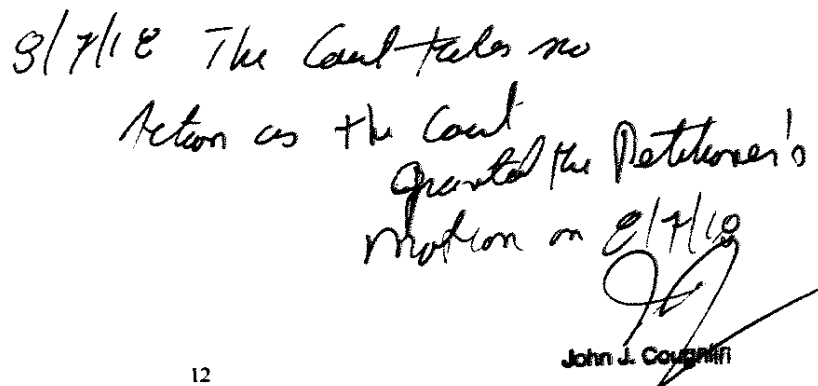 8/7/18 The Court takes no
Action as the Court
granted the Petitioner's
motion on 8/7/18
John J. Coughlin
12